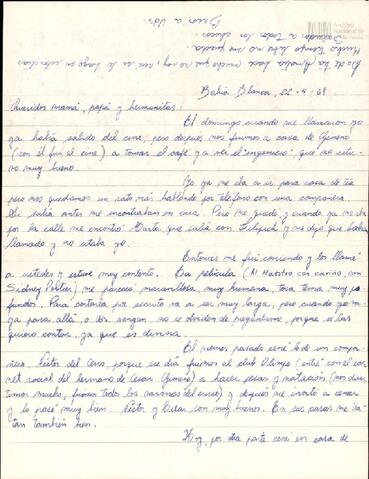 Archivo
Nacional de
Besos a Uds.
Saludos a todos los chicos.
tiempo
mucho que no voy, a ver si lo hago en estos días
Bahía Blanca, 22-4-68
Queridos mamá, papá y hermanitos:
El domingo cuando me llamaron yo
ya había salido del cine, pero después nos fuimos a casa de Ginero
(con él fui al cine) a tomar el café y a ver el "ingenioso", que no estu-
vo muy bueno.
Yo ya me iba a ir para casa de tía
pero nos quedamos un rato más hablando por teléfono con una compañera.
Si salía antes me encontraban en casa. Pero me quedé, y cuando ya me iba
por la calle me encontró Marta que salía con y me dijo que habían
llamado y no estaba yo.
Entonces me fui corriendo y los llamé
a ustedes y estuve muy contento. La película (Al Maestro con cariño, con
Sidney Poitier) me pareció maravillosa, muy humana, toca temas muy pro-
fundos. Para contarla por escrito va a ser muy larga, pero cuando yo va-
ya para allá, o Uds. vengan no se olviden de preguntarme, porque se las
quiero contar, ya que es divina.
El viernes pasado cené lo de un compa-
ñero, Néstor del Cero, porque ese día fuimos al club Olimpo (entré con el car-
net social del hermano de César Ginero) a hacer pesas y natación (nos divertimos
mucho, fuimos todos los varones del curso) y después me invitó a cenar
y lo pasé muy bien. Néstor y César son muy buenos. En sus casas me tra-
tan también bien.
Hoy, por otra parte cené en casa de